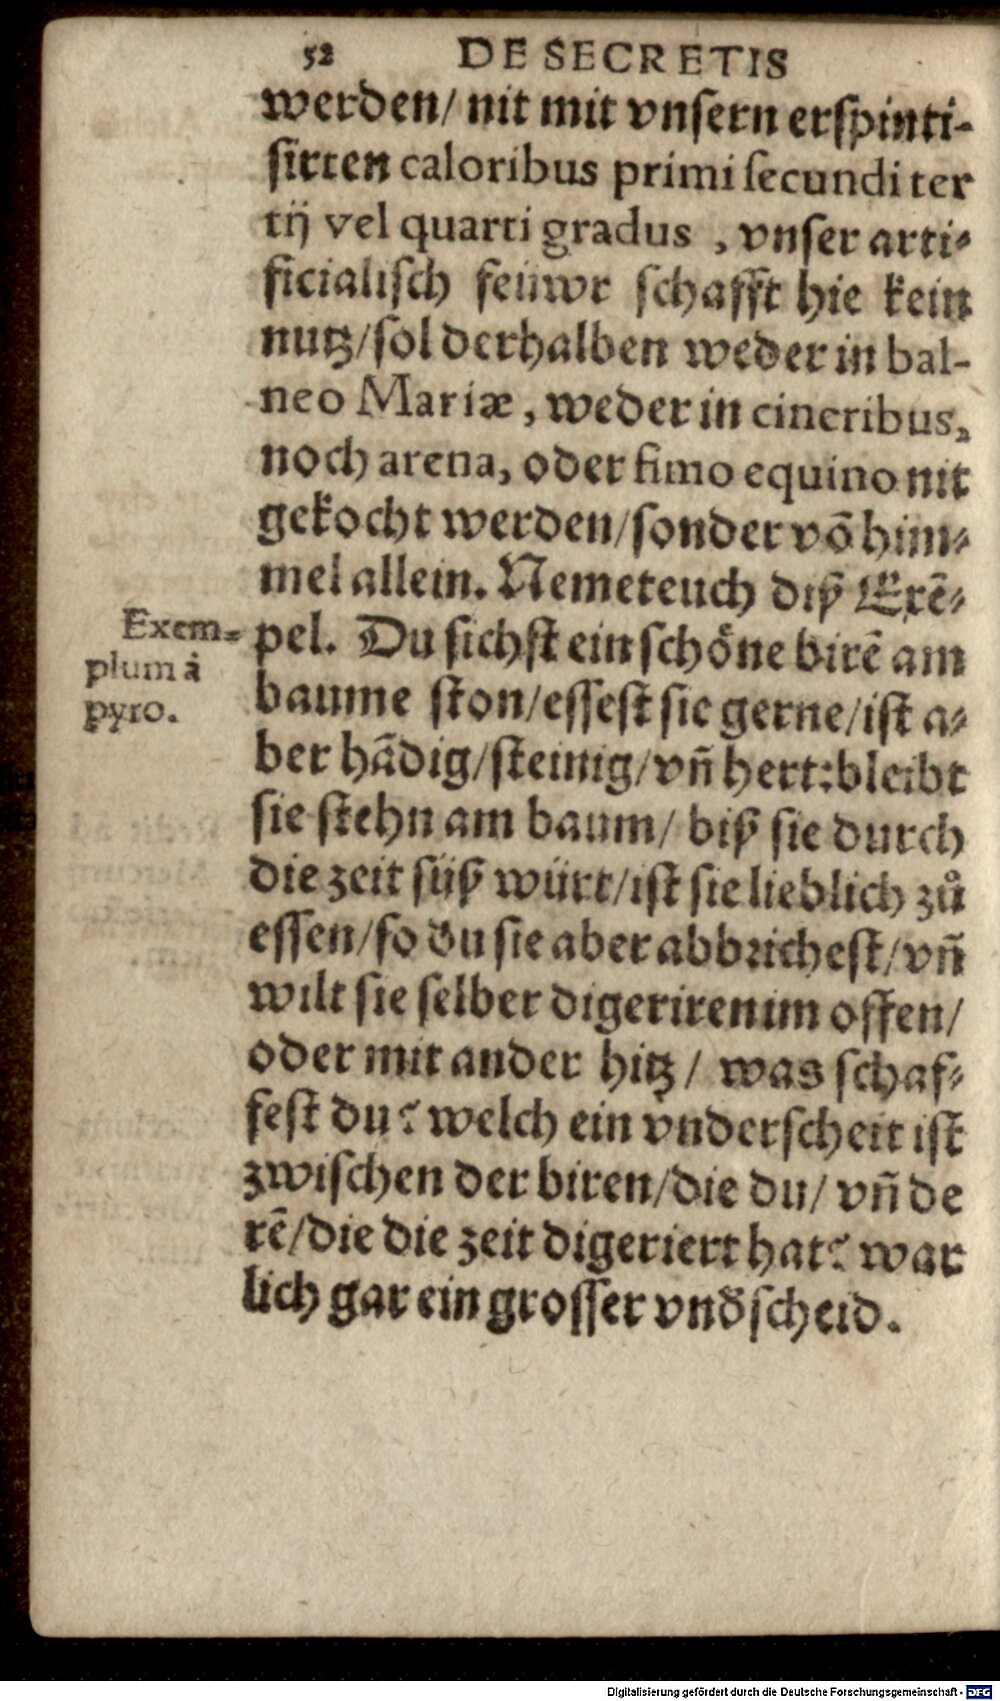 52 DE SECRETIS
werden/ nit mit vnsern erspinti-
sirten caloribus primi secundi ter
tij vel quarti gradus , vnser arti-
ficialisch feüwr schafft hie kein
nutz/sol derhalben weder in bal-
neo Mariæ, weder in cineribus,
noch arena, oder fimo equino nit
gekocht werden/sonder võ him-
mel allein. Nemet euch diß Exẽ-
pel. Du sichst ein schöne birẽ am
baume ston/essest sie gerne/ist a-
ber hãdig/steinig/vñ hert:bleibt
sie stehn am baum/ biß sie durch
die zeit süß würt/ist sie lieblich zů
essen/so du sie aber abbrichest/vñ
wilt sie selber digeriren im offen/
oder mit ander hitz/ was schaf-
fest du? welch ein vnderscheit ist
zwischen der biren/die du/ vñ de
rẽ/die die zeit digeriert hat? war
lich gar ein grosser vnd̃scheid.
Exem-
plum à
pyro.
Digitalisierung gefördert durch die Deutsche Forschungsgemeinschaft - DFG